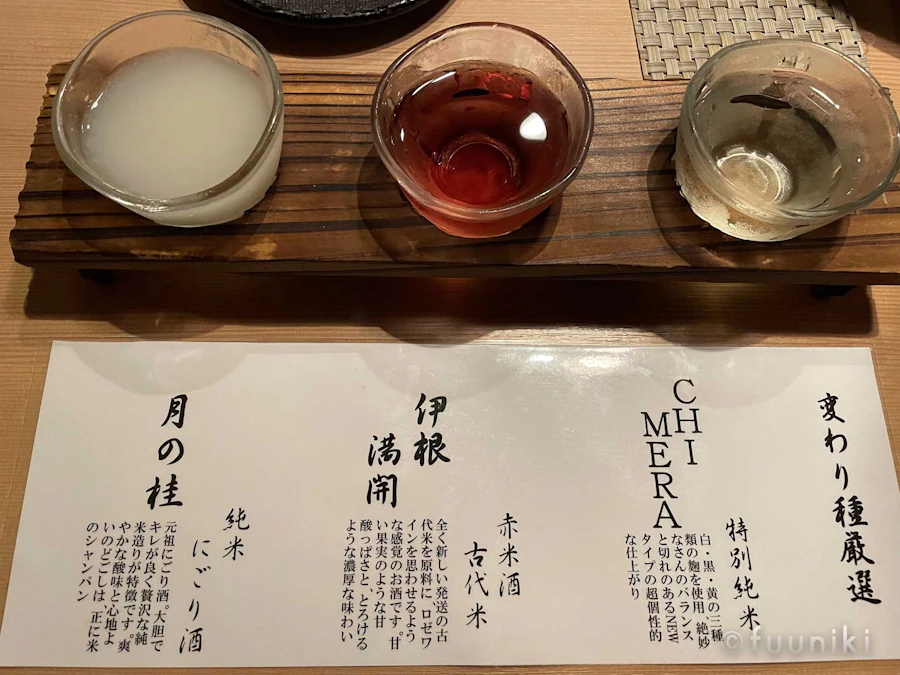 変わり種厳選
CHI
MERA
特別純米
白・黒・黄の三種
類の麹を使用、絶妙
なさんのバランス
と切れのあるNEW
タイプの超個性的
な仕上がり
伊根
満開
赤米酒
古代米
全く新しい発送の古
代米を原料に ロゼワ
インを思わせるよう
な感覚のお酒です。甘
い果実のような甘
酸っぱさと、とろける
ような濃厚な味わい
月の桂
純米
にごり酒
元祖にごり酒。大胆で
キレが良く贅沢な純
米造りが特徴です。爽
やかな酸味と心地よ
いのどごしは、正に米
のシャンパン
©fuuniki